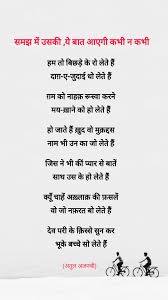 समझ में उसकी ,ये बात आएगी कभी न कभी
हम तो बिछड़े के रो लेते हैं
दाग़-ए-जुदाई धो लेते हैं
ग़म को नाहक़ रुस्वा करने
मय-ख़ाने को हो लेते हैं
हो जाते हैं ख़ुद वो मुक़द्दस
नाम भी उन का जो लेते हैं
जिस ने भी कीं प्यार से बातें
साथ उस के हो लेते हैं
क्यूँ चाहें अख़्लाक़ की फ़सलें
वो जो नफ़रत बो लेते हैं
देव परी के क़िस्से सुन कर
भूके बच्चे सो लेते हैं
(अतुल अजनबी)